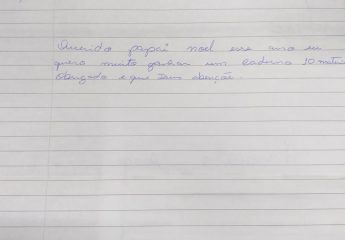 Querido papai noel esse ano eu
quero muito ganhar um caderno 10 materi
obrigado e que Deus abençõe.